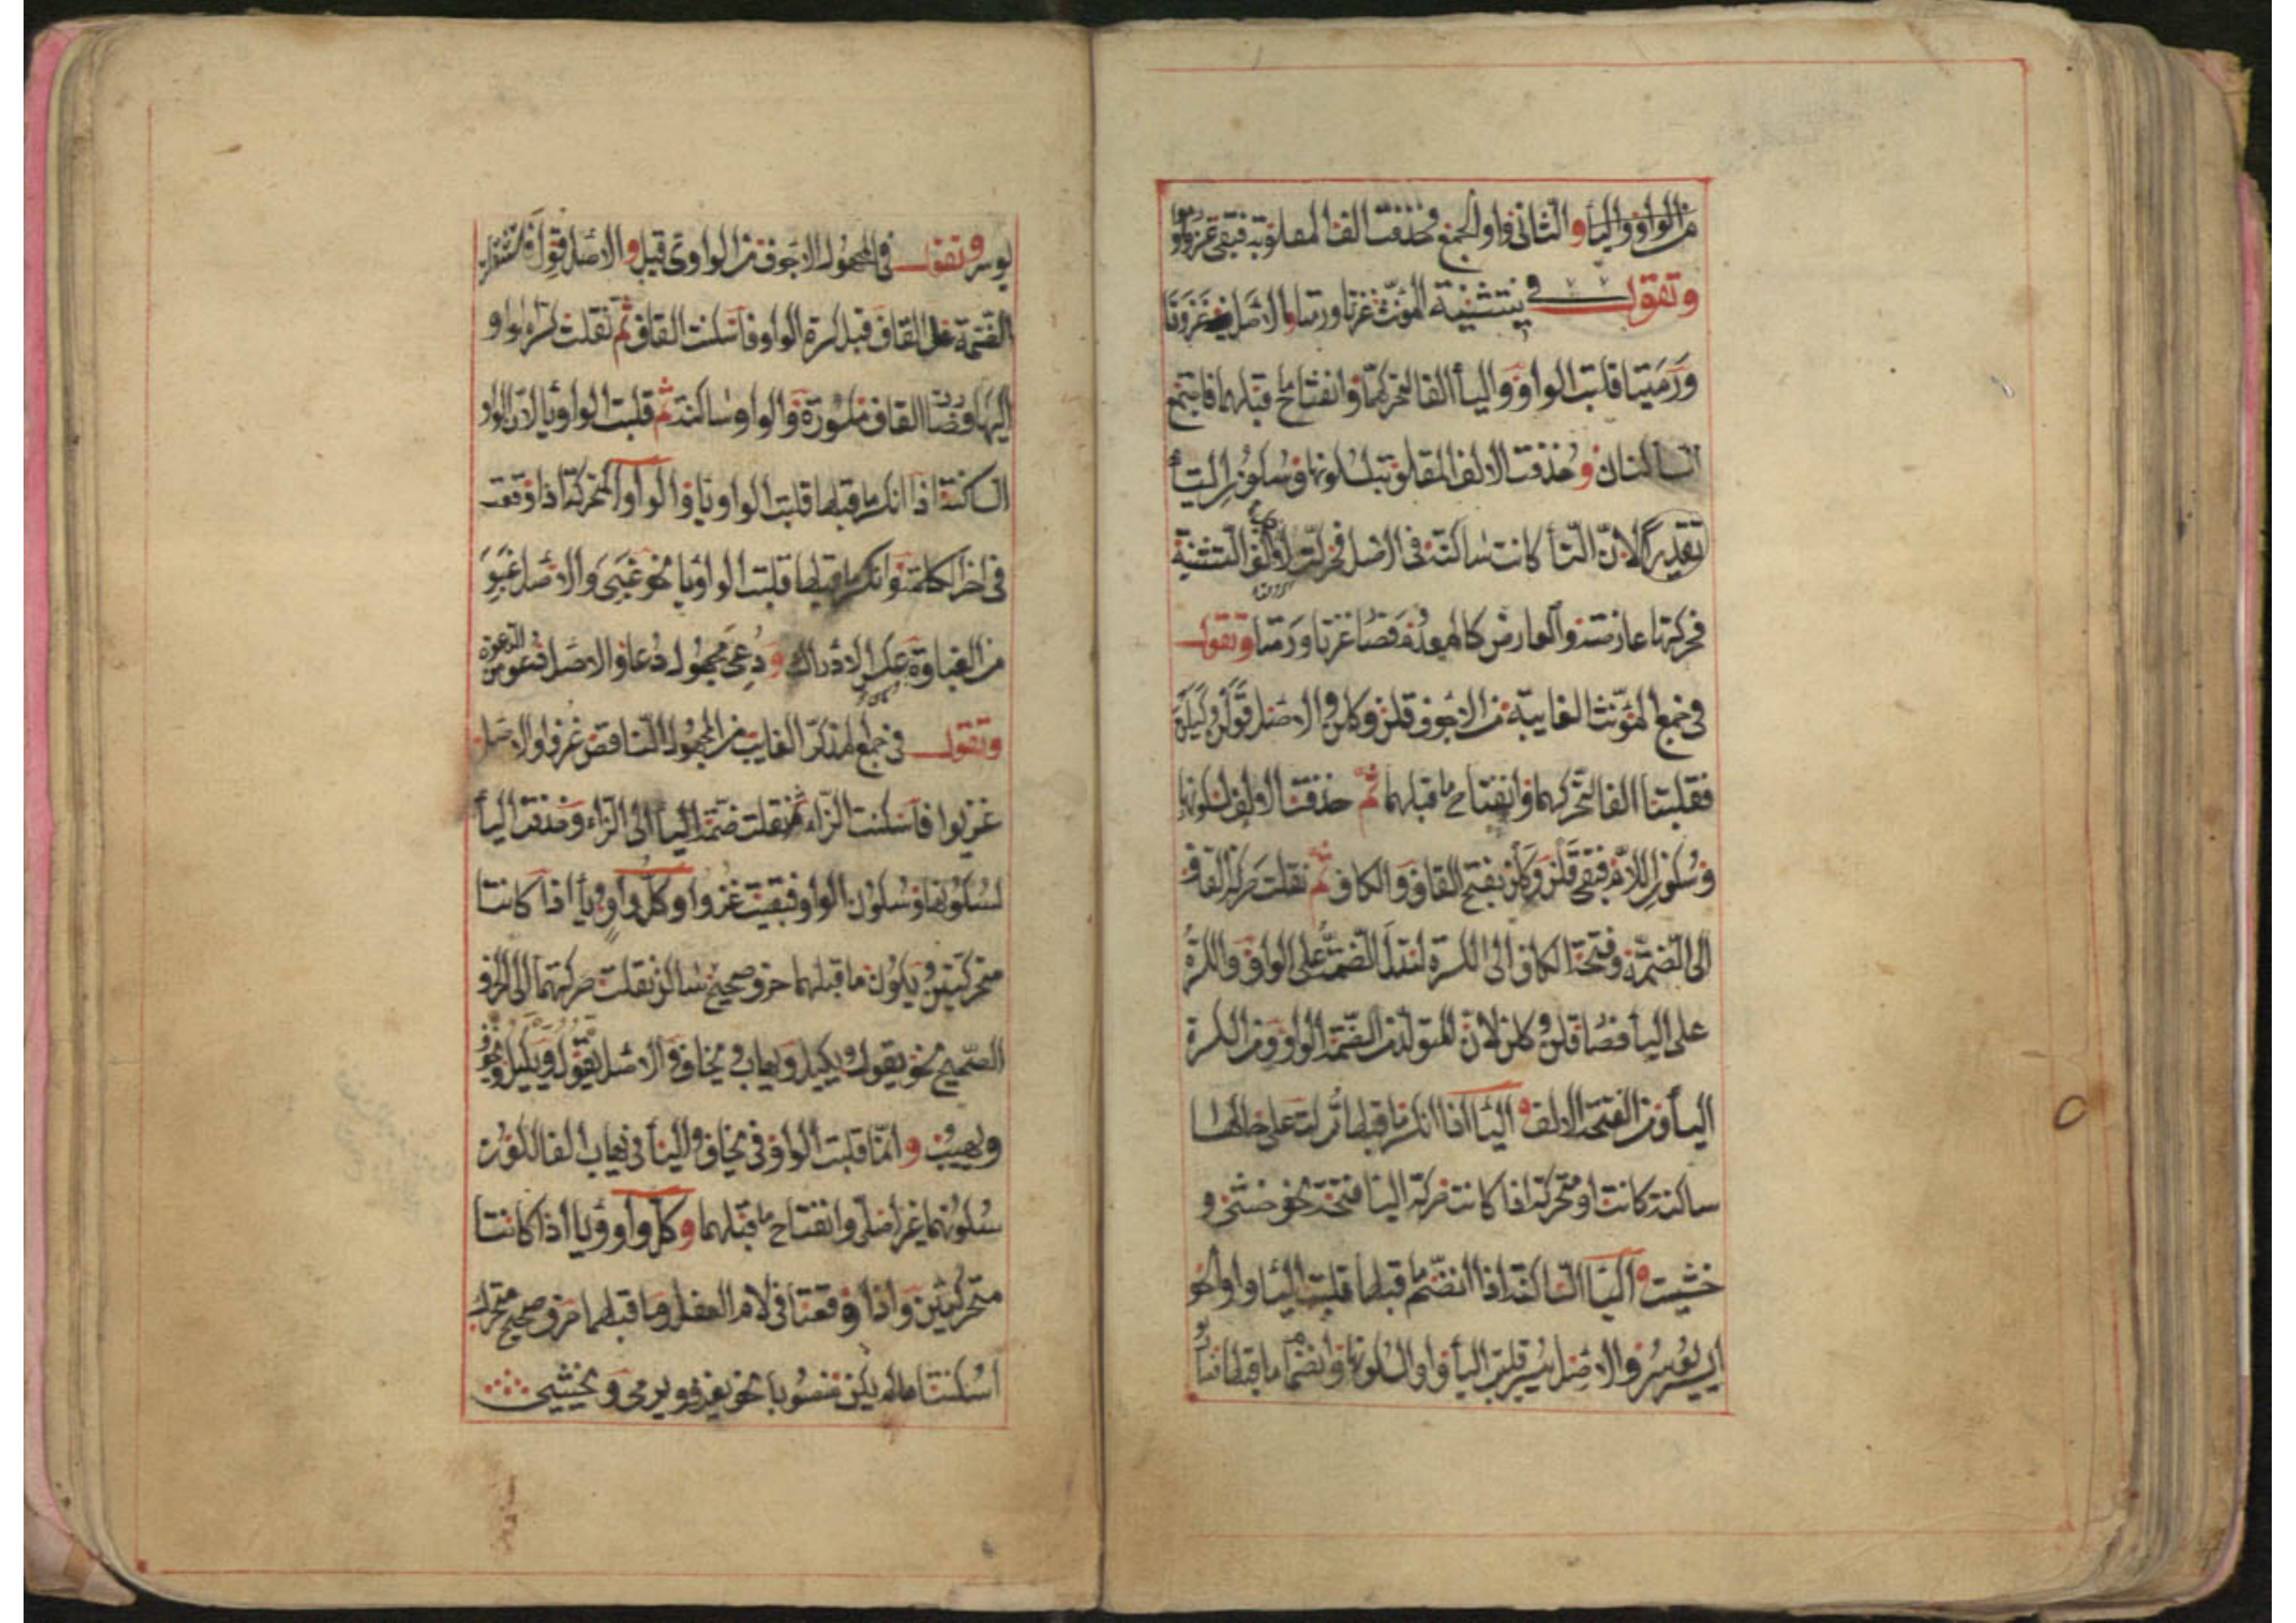 من الواو والياء والثاني واو الجمع فحذفت الف المقلوبة فبقى غزوا ورموا
وتقول في تثنية المؤنث غزتا ورمتا والاصل غزوتا
ورميتا قلبت الواو والياء الفا لتحركهما وانفتاح ما قبلهما فاجتمع
الساكنان وحذفت الالف المقلوبة لسكونها وسكون التاء
تقديرا لان التاء كانت ساكنة في الاصل فحركت لالف التثنية
فحركتها عارضة والعارض كالمعدوم فصار غزتا ورمتا وتقول
في جمع المؤنث الغايبة من الاجوف قلن وكلن والاصل قولن وكيلن
فقلبتا الفا لتحركهما وانفتاح ما قبلهما ثم حذفت الالف لسكونها
وسكون اللام فبقى قلن وكلن بفتح القاف والكاف ثم نقلت حركة القاف
الى الضمة وفتحة الكاف الى الكسرة لتدل الضمة على الواو والكسرة
على الياء فصار قلن وكلن لان المتولد من الضمة الواو ومن الكسرة
الياء ومن الفتحة الالف والياء اذا انكسر ما قبلها تركت على حالها
ساكنة كانت او متحركة اذا كانت حركة الياء فتحة نحو خشى و
خشيت والياء الساكنة اذا انضم ما قبلها قلبت الياء واوا نحو
ايسر يوسر والاصل ييسر قلبت الياء واوا لسكونها وانضمام ما قبلها فصار
يوسر وتقول في المجهول الاجوف من الواوى قيل والاصل قول فاستثقلت
الضمة على القاف قبل كسرة الواو فاسكنت القاف ثم نقلت كسرة الواو
اليها فصار القاف مكسورة والواو ساكنة ثم قلبت الواو ياء لان الواو
الساكنة اذا انكسر ما قبلها قلبت الواو ياء والواو المتحركة اذا وقعت
في اخر الكلمة وانكسر ما قبلها قلبت الواو ياء نحو غبى والاصل غبو
من الغباوة عكس الادراك ودعى مجهول دعا والاصل دعو من الدعوة
وتقول في جمع المذكر الغايب من المجهول الناقص غزوا والاصل
غزيوا فاسكنت الزاء ثم نقلت ضمة الياء الى الزاء وحذفت الياء
لسكونها وسكون الواو فبقيت غزوا وكل واو وياء اذا كانتا
متحركتين ويكون ما قبلهما حرف صحيح ساكن نقلت حركتهما الى الحرف
الصحيح نحو يقول ويكيل ويهاب ويخاف والاصل يقول ويكيل ويخوف
ويهيب وانما قلبت الواو في يخاف والياء في يهاب الفا لكون
سكونهما غير اصلى وانفتاح ما قبلهما وكل واو وياء اذا كانتا
متحركتين واذا وقعتا في لام الفعل وما قبلهما حرف صحيح متحرك
اسكنتا ما لم يكن منصوبا نحو يغزو ويرمى ويخشى